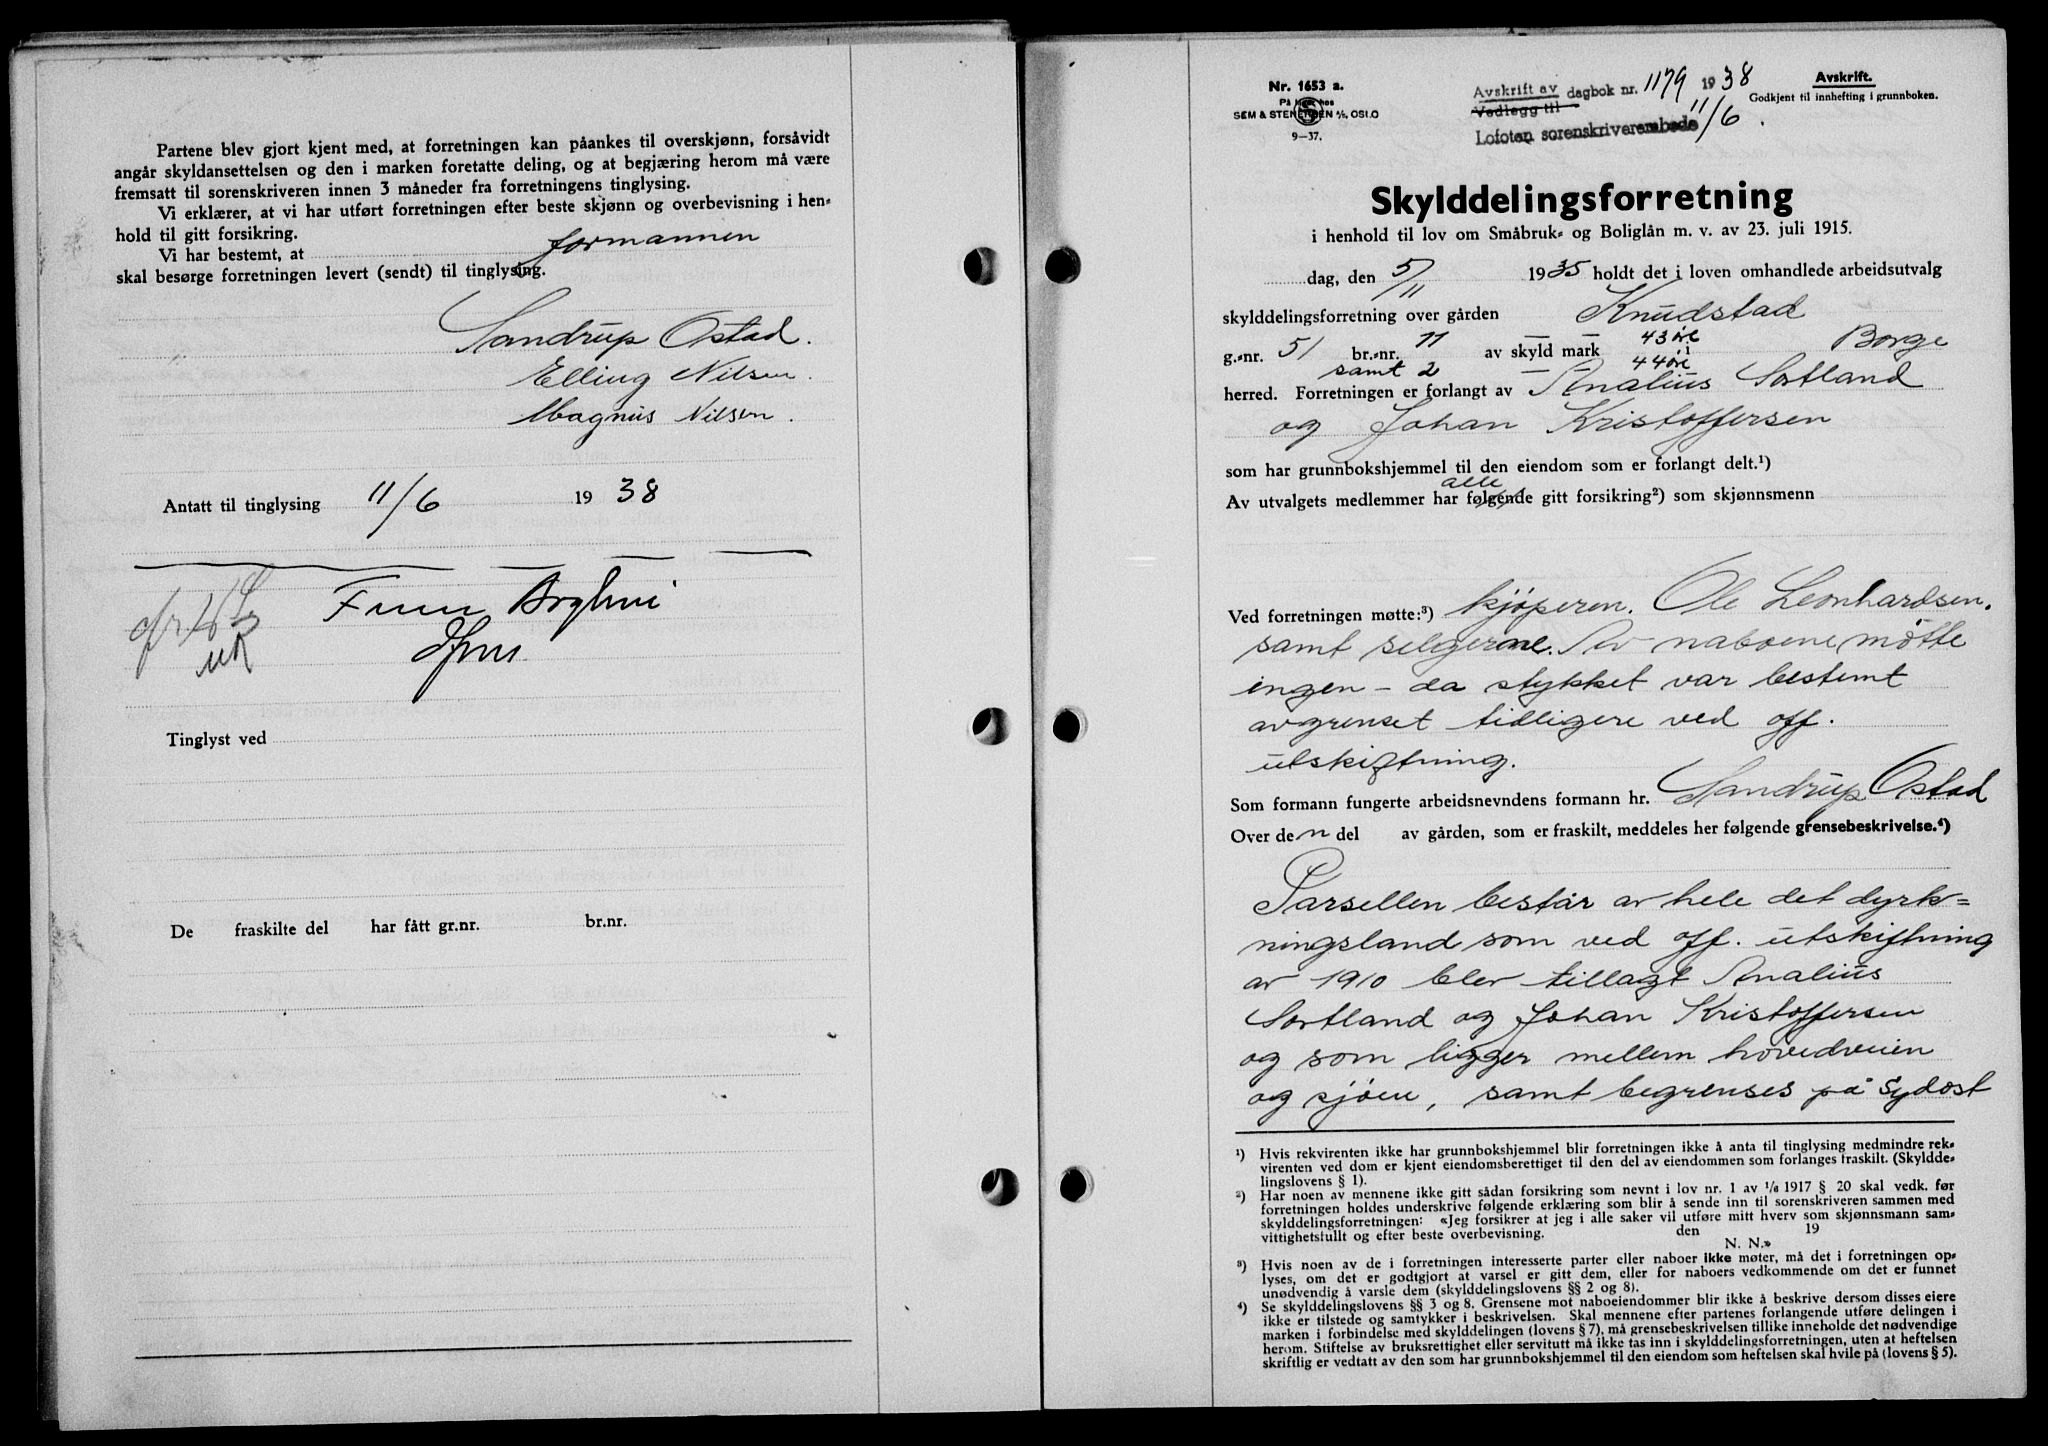 Partene blev gjort kjent med, at forretningen kan påankes til overskjønn, forsåvidt
angår skyldansettelsen og den i marken foretatte deling, og at begjæring herom må være
fremsatt til sorenskriveren innen 3 måneder fra forretningens tinglysing.
Vi erklærer, at vi har utført forretningen efter beste skjønn og overbevisning i hen-
hold til gitt forsikring.
Vi har bestemt, at formannen
skal besørge forretningen levert (sendt) til tinglysing.
Sandrup Ostad.
Elling Nilsen.
Magnus Nilsen.
Antatt til tinglysing 11/6 1938
Tinglyst ved
De fraskilte del har fått gr.nr. br.nr.
Nr. 1653 a.
På lager hos
SEM & STENERSEN A/S, OSLO
9-37.
Avskrift av dagbok nr. 1179 1938
Vedlegg til 11/6.
Lofoten sorenskriverembede
Avskrift.
Godkjent til innhefting i grunnboken.
Skylddelingsforretning
i henhold til lov om Småbruk- og Boliglån m. v. av 23. juli 1915.
dag, den 5/11 1935 holdt det i loven omhandlede arbeidsutvalg
skylddelingsforretning over gården Knudstad
g.-nr. 51 br.-nr. 11 av skyld mark — — 43 øre i Borge
samt 2 — — 44 øre
herred. Forretningen er forlangt av Analius Sortland
og Johan Kristoffersen
som har grunnbokshjemmel til den eiendom som er forlangt delt.¹)
Av utvalgets medlemmer har følgende alle gitt forsikring²) som skjønnsmenn
Ved forretningen møtte:³) kjøperen. Ole Leonhardsen.
samt selgerne. Av naboene møtte
ingen - da stykket var bestemt
avgrenset tidligere ved off.
utskiftning.
Som formann fungerte arbeidsnevndens formann hr. Sandrup Ostad
Over den del av gården, som er fraskilt, meddeles her følgende grensebeskrivelse.⁴)
Parsellen består av hele det dyrk=
ningsland som ved off. utskiftning
av 1910 blev tillagt Analius
Sortland og Johan Kristoffersen
og som ligger mellem hovedveien
og sjøen, samt begrenses på sydost
¹) Hvis rekvirenten ikke har grunnbokshjemmel blir forretningen ikke å anta til tinglysing medmindre rek-
virenten ved dom er kjent eiendomsberettiget til den del av eiendommen som forlanges fraskilt. (Skyldde-
lingslovens § 1).
²) Har noen av mennene ikke gitt sådan forsikring som nevnt i lov nr. 1 av 1/6 1917 § 20 skal vedk. før
forretningen holdes underskrive følgende erklæring som blir å sende inn til sorenskriveren sammen med
skylddelingsforretningen: «Jeg forsikrer at jeg i alle saker vil utføre mitt hverv som skjønnsmann sam-
vittighetsfullt og efter beste overbevisning. den 19
N. N.»
³) Hvis noen av de i forretningen interesserte parter eller naboer ikke møter, må det i forretningen op-
lyses, om det er godtgjort at varsel er gitt dem, eller for naboers vedkommende om det er funnet
unødvendig å varsle dem (skylddelingslovens §§ 2 og 8).
⁴) Se skylddelingslovens §§ 3 og 8. Grensene mot naboeiendommer blir ikke å beskrive dersom disses eiere
ikke er tilstede og samtykker i beskrivelsen. Skal mennene efter partenes forlangende utføre delingen i
marken i forbindelse med skylddelingen (lovens § 7), må grensebeskrivelsen tillike inneholde det nødvendige
herom. Stiftelse av bruksrettighet eller servitutt må ikke tas inn i skylddelingsforretningen, uten at heftelsen
skriftlig er vedtatt av den som har grunnbokshjemmel til den eiendom som heftelsen skal hvile på (lovens § 5).